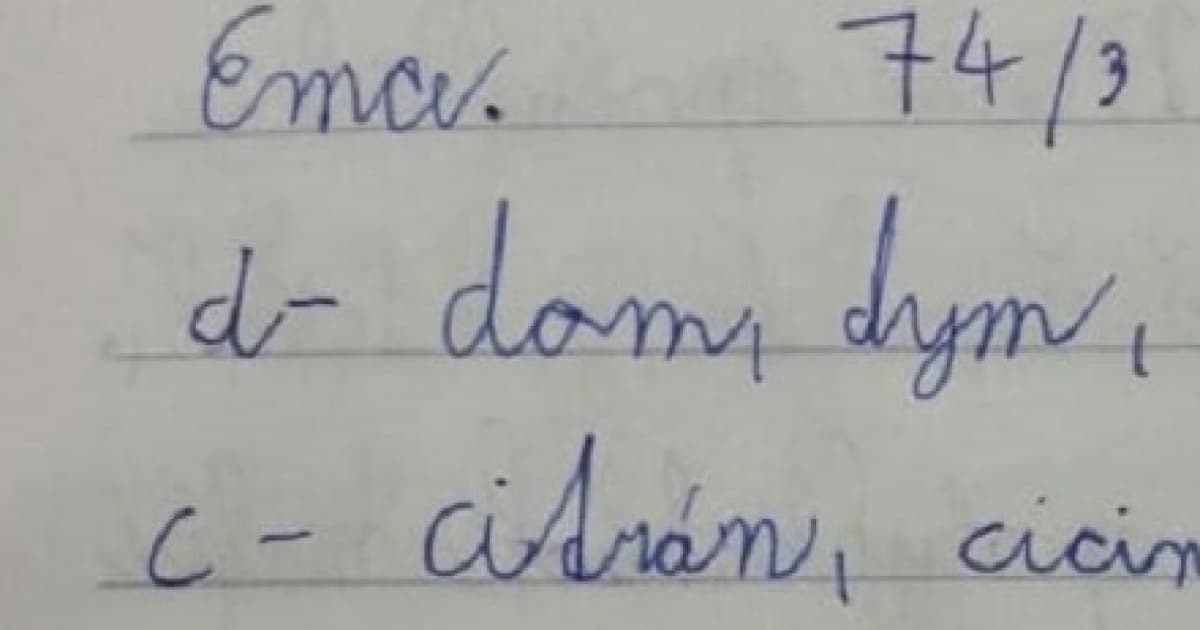 Ema. 74/3
d- dom, dym,
c - citrán, cicin